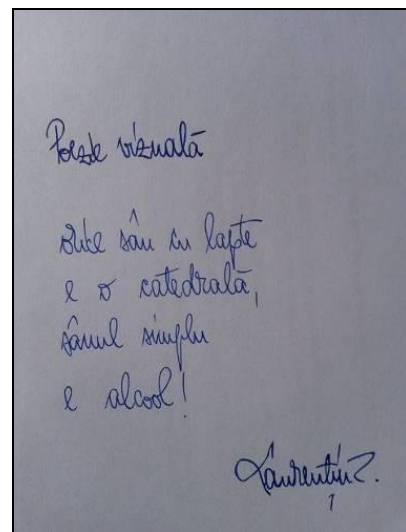 Poezie vizuală
orice sân cu lapte
e o catedrală,
sânul simplu
e alcool!
Laurențiu